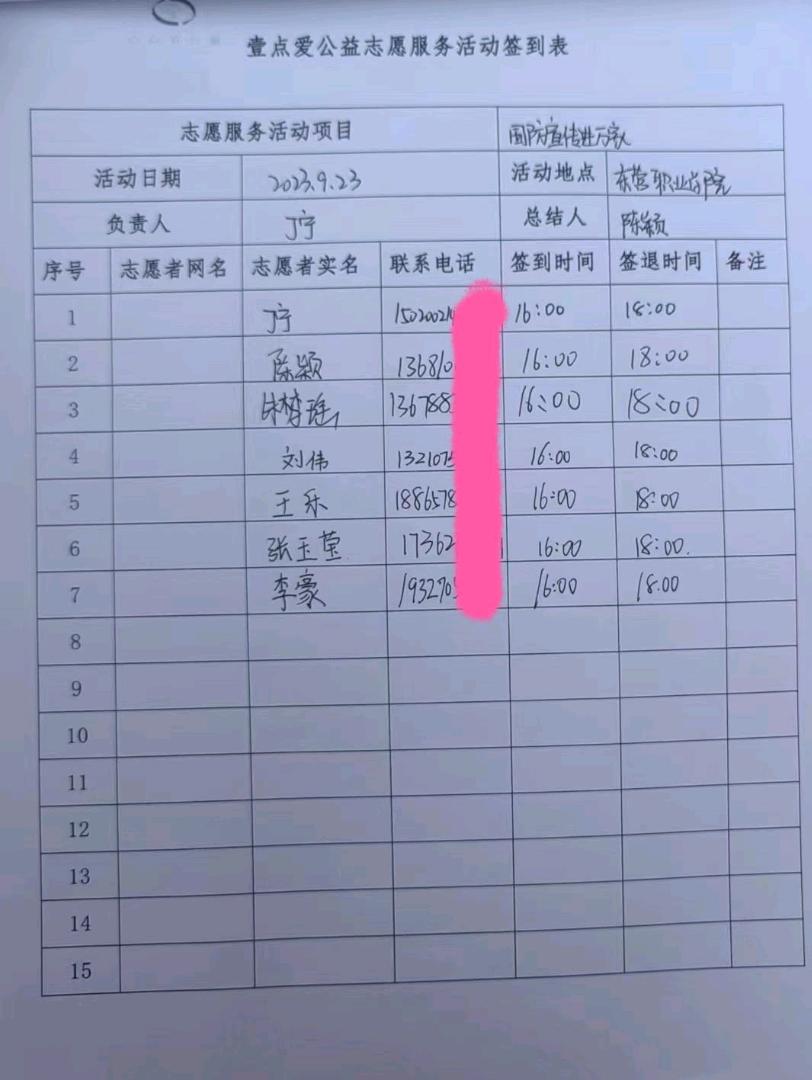 壹点爱公益志愿服务活动签到表
志愿服务活动项目 国防宣传进万家
活动日期 2023.9.23 活动地点 东营职业学院
负责人 丁宁 总结人 陈颖
序号 志愿者网名 志愿者实名 联系电话 签到时间 签退时间 备注
1 丁宁 1502002 16:00 18:00
2 陈颖 13681 16:00 18:00
3 朱梦瑶 136788 16:00 18:00
4 刘伟 132107 16:00 18:00
5 王乐 1886578 16:00 18:00
6 张玉莹 17362 16:00 18:00.
7 李豪 193270 16:00 18.00
8
9
10
11
12
13
14
15